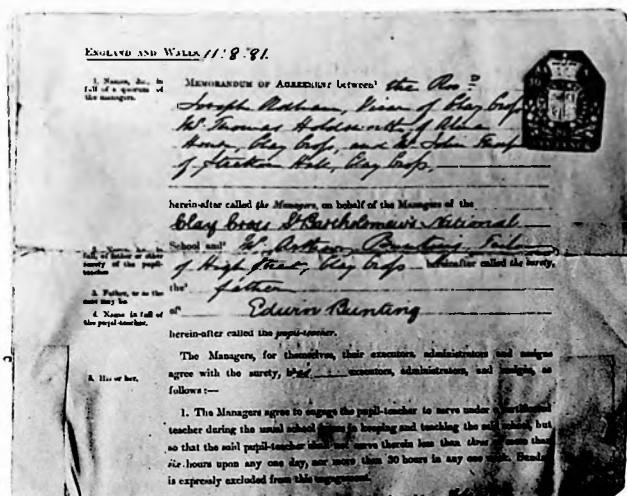 ENGLAND AND WALES 11.8.81.
1. Names, &c., in full of a quorum of the managers.
MEMORANDUM OF AGREEMENT between¹ the Rev:ᵈ
Joseph Oldham, Vicar of Clay Cross
Mr. Thomas Holdsworth of Alma
House, Clay Cross, and Mr. John
of Stretton Hall, Clay Cross,
herein-after called the Managers, on behalf of the Managers of the
Clay Cross St Bartholomew's National
2. Name, &c. in full, of father or other surety of the pupil-teacher
School and² Mr. Arthur Bunting,
of High Street, Clay Cross herein-after called the surety,
3. Father, or as the case may be.
the³ father
4. Name in full of the pupil-teacher.
of⁴ Edwin Bunting
herein-after called the pupil-teacher.
The Managers, for themselves, their executors, administrators and assigns
5. His or her.
agree with the surety, executors, administrators, and assigns, as
follows:—
1. The Managers agree to engage the pupil-teacher to serve under a certificated
teacher during the usual school hours in keeping and teaching the said school, but
so that the said pupil-teacher shall not serve therein less than three or more than
six hours upon any one day, nor more than 30 hours in any one week. Sunday
is expressly excluded from this engagement.